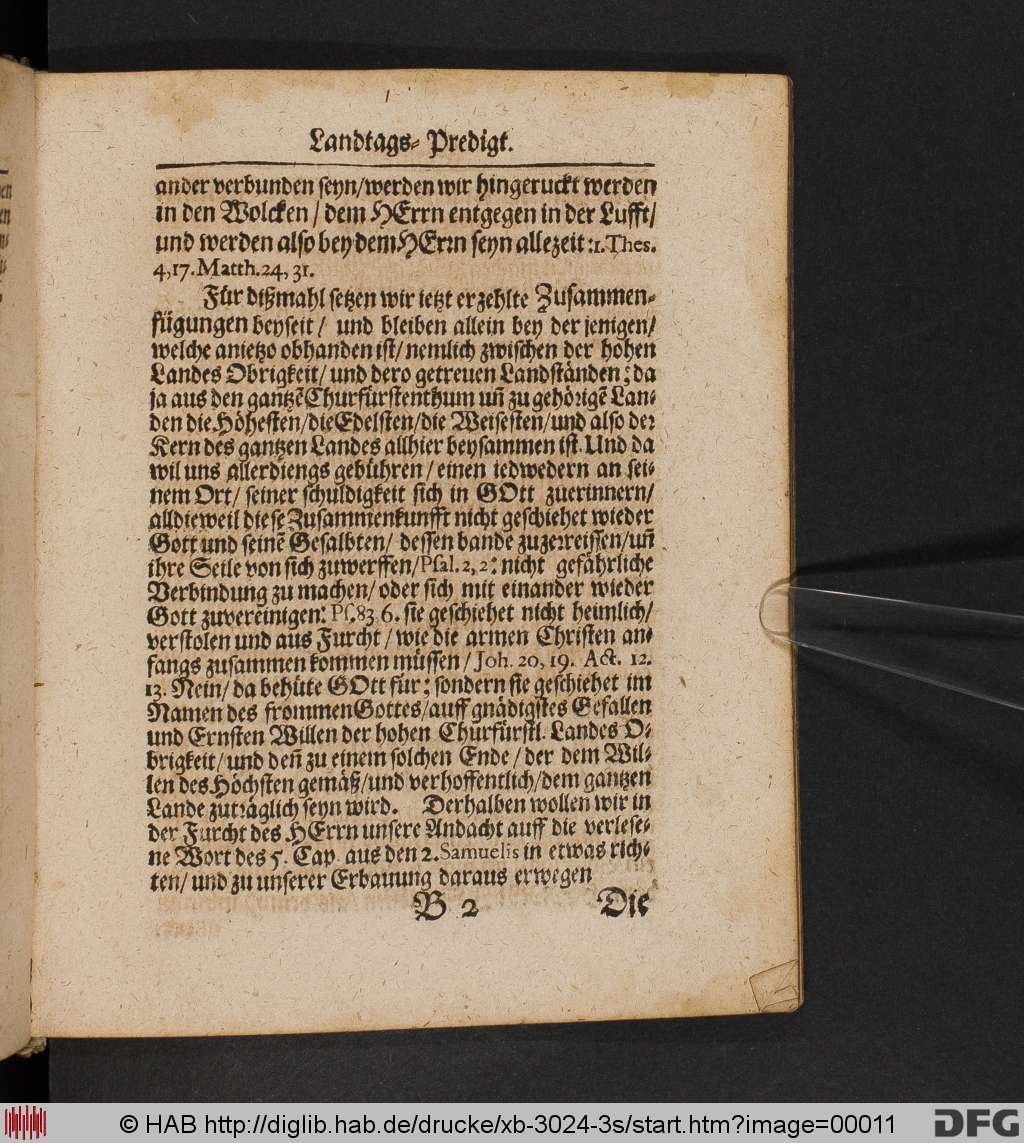 Landtags-Predigt.
ander verbunden seyn/werden wir hingeruckt werden
in den Wolcken / dem HErrn entgegen in der Lufft/
und werden also bey dem HErrn seyn allezeit: 1. Thes.
4,17. Matth. 24, 31.
Für dißmahl setzen wir ietzt erzehlte Zusammen-
fügungen beyseit / und bleiben allein bey der jenigen/
welche anietzo obhanden ist/ nemlich zwischen der hohen
Landes Obrigkeit/ und dero getreuen Landständen; da
ja aus den gantzē Churfürstenthum un̄ zu gehörigē Lan-
den die Höhesten/die Edelsten/die Weisesten/und also der
Kern des gantzen Landes allhier beysammen ist. Und da
wil uns allerdiengs gebühren / einen iedwedern an sei-
nem Ort/ seiner schuldigkeit sich in GOtt zuerinnern/
alldieweil diese Zusammenkunfft nicht geschiehet wieder
Gott und seinē Gesalbten/ dessen bande zuzerreissen/un̄
ihre Seile von sich zuwerffen/Psal. 2, 2: nicht gefährliche
Verbindung zu machen/ oder sich mit einander wieder
Gott zuvereinigen: Ps. 83 6. sie geschiehet nicht heimlich/
verstolen und aus Furcht / wie die armen Christen an-
fangs zusammen kommen müssen / Joh. 20, 19. Act. 12.
13. Nein/ da behüte GOtt für; sondern sie geschiehet im
Namen des frommen Gottes/auff gnädigstes Gefallen
und Ernsten Willen der hohen Churfürstl. Landes O-
brigkeit/ und den̄ zu einem solchen Ende / der dem Wil-
len des Höchsten gemäß/und verhoffentlich/dem gantzen
Lande zuträglich seyn wird. Derhalben wollen wir in
der Furcht des HErrn unsere Andacht auff die verlese-
ne Wort des 5. Cap. aus den 2. Samuelis in etwas rich-
ten/ und zu unserer Erbauung daraus erwegen
B 2 Die
© HAB http://diglib.hab.de/drucke/xb-3024-3s/start.htm?image=00011
DFG